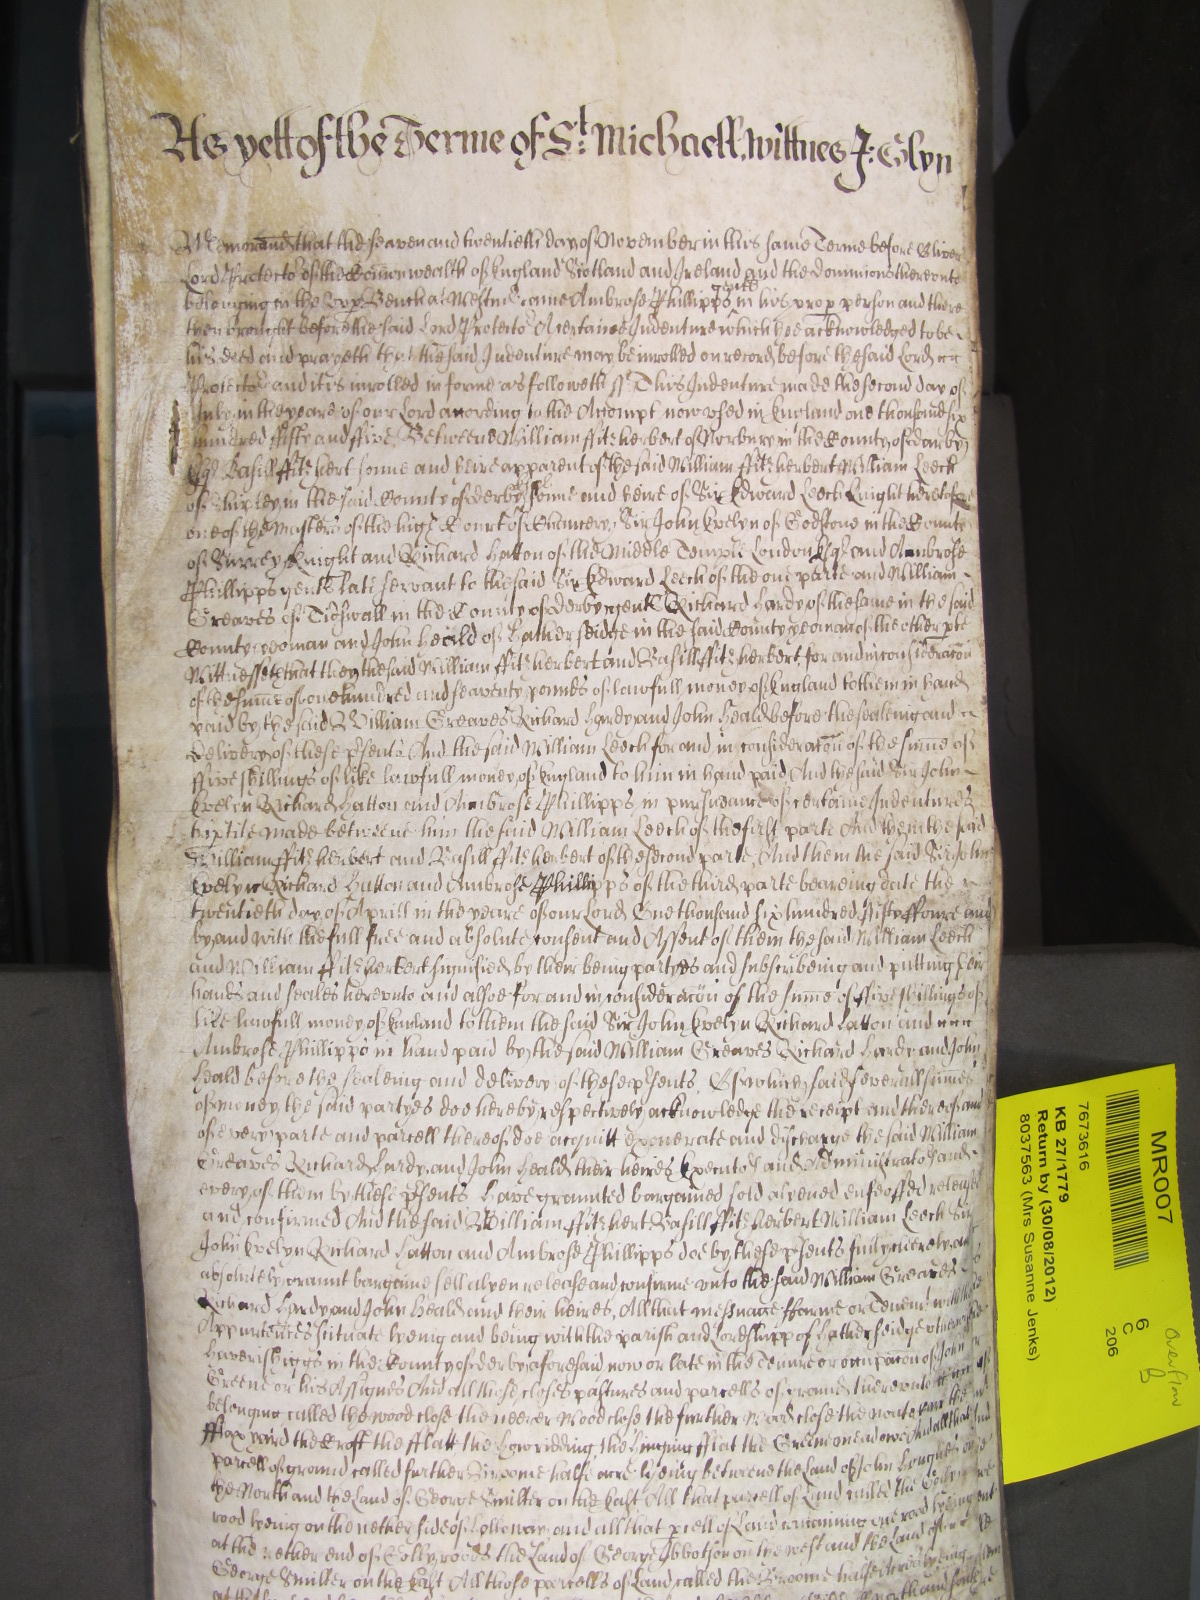 As yett of the Terme of St: Michaell, wittnes J: Glyn
Memorand that the seaven and twentieth day of November in this same Terme before Oliver
Lord Protector of the Comonwealth of England Scotland and Ireland and the dominions thereunto
belonging in the Upp Bench at Westm Came Ambrose Phillipps gent in his prop person and there
then brought before the said Lord Protector A certaine Indenture which hee acknowledged to be
his deed and prayeth that the said Indenture may be inrolled on record before the said Lord
Protector and it is inrolled in forme as followeth ss This Indenture made the second day of
July in the yeare of our Lord according to the Accompt now used in England one thousand six
hundred fifty and five Betweene William ffitzherbert of Norbury in the County of darby
Esqr Basill ffitzherbert sonne and heire apparent of the said William ffitzherbert William Leech
of Shirley in the said County of derby sonne and heire of Sir Edward Leech knight heretofore
one of the Masters of the high Court of Chancery, Sir John Evelyn of Godstone in the County
of Surrey Knight and Richard Hatton of the Middle Temple London Esqr and Ambrose
Phillipps gent late servant to the said Sir Edward Leech of the one parte and William
Greaves of Tidswall in the County of derby gent Richard Hardy of the same in the said
County yeoman and John Heald of Hatherseidge in the said County yeoman of the other pte
Wittnesseth that they the said William ffitzherbert and Basill ffitzherbert for and in consideracon
of the sume of one hundred and seaventy pounds of lawfull money of England to them in hand
paid by the said William Greaves Richard Hardy and John Heald before the sealeing and
delivery of these psents And the said William Leech for and in consideracon of the sume of
ffive shillings of like lawfull money of England to him in hand paid And the said Sir John
Evelyn Richard Hatton and Ambrose Phillipps in pursuance of certaine Indentures
triptite made betweene him the said William Leech of the first parte And them the said
William ffitzherbert and Basill ffitzherbert of the second parte, And them the said Sir John
Evelyn Richard Hatton and Ambrose Phillipps of the third parte beareing date the
twentieth day of Aprill in the yeare of our Lord One thousand six hundred fifty ffoure and
by and with the full free and absolute consent and Assent of them the said William Leech
and William ffitzherbert signified by their being partyes and subscribeing and putting their
hands and seales hereunto and alsoe for and in consideracon of the sume of ffive shillings of
like lawfull money of England to them the said Sir John Evelyn Richard Hatton and
Ambrose Phillipps in hand paid by the said William Greaves Richard Hardy and John
Heald before the sealeing and delivery of these psents, Of which said severall sumes
of money the said partyes doe hereby respectively acknowledge the receipt and thereof and
of every parte and parcell thereof doe acquitt exonerate and discharge the said William
Greaves Richard Hardy and John Heald their heires Executors and Administrators and
every of them by these psents Have graunted bargained sold aliened enfeoffed released
and confirmed And the said William ffitzherbert Basill ffitzherbert William Leech Sir
John Evelyn Richard Hatton and Ambrose Phillipps doe by these psents fully cleerely and
absolutely graunt bargaine sell alyen release and confirme unto the said William Greaves
Richard Hardy and John Heald and their heires, All that messuage ffarme or Tenemt with the
Appurtences scituate lyeing and being with the parish and Lordshipp of Hatherseidge
in the County of derby aforesaid now or late in the Tenure or occupacon of John
Greene or his Assignes And all those closes pastures and parcells of ground thereunto
belonging called the wood close the neerer wood close the further wood close the
fflax yaird the Croft the fflatt the Lowridding the Linging fflat the Greene meadowe And all that
parcell of ground called further Broome halfe acre lyeing betweene the Land of John
the North and the Land of George Smilter on the East All that parcell of Land called the
rood lyeing on the nether side of Holloway and all that pcell of Land containing one rood lyeing
at the nether end of the Land of George Ibbotson on the west and the Land of
George Smilter on the East All those parcells of Land called the Broome halfe Acres lyeing
MR007
7673616
KB 27/1779
Return by (30/08/2012)
8037563 (Mrs Susanne Jenks)
6
C
206
Overflow